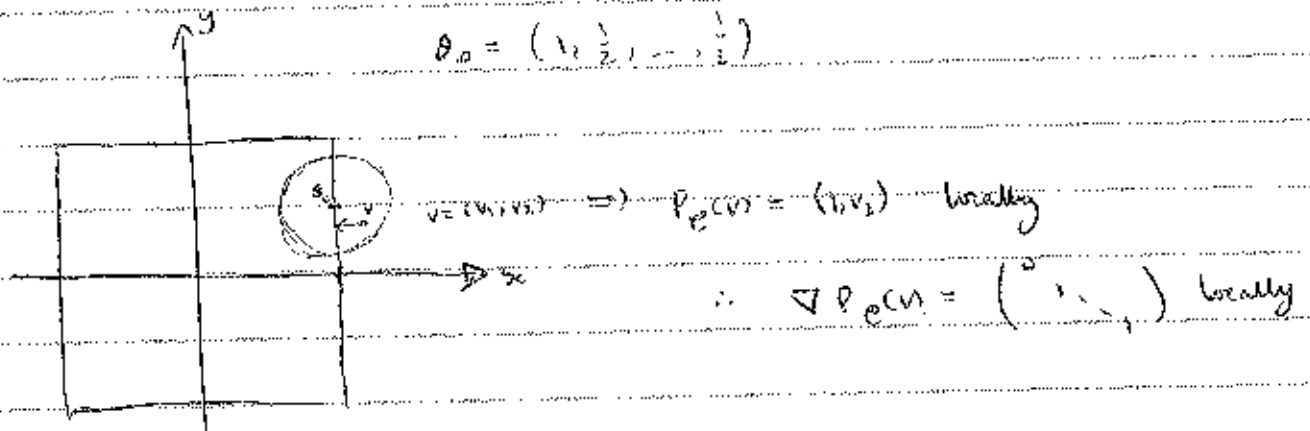 y
θ₀ = (1, ½, ..., ½)
s v v = (v₁, v₂) ⇒ P_e(v) = (1, v₂) locally
x
∴ ∇P_e(v) = (0 1 ⋱ 1) locally